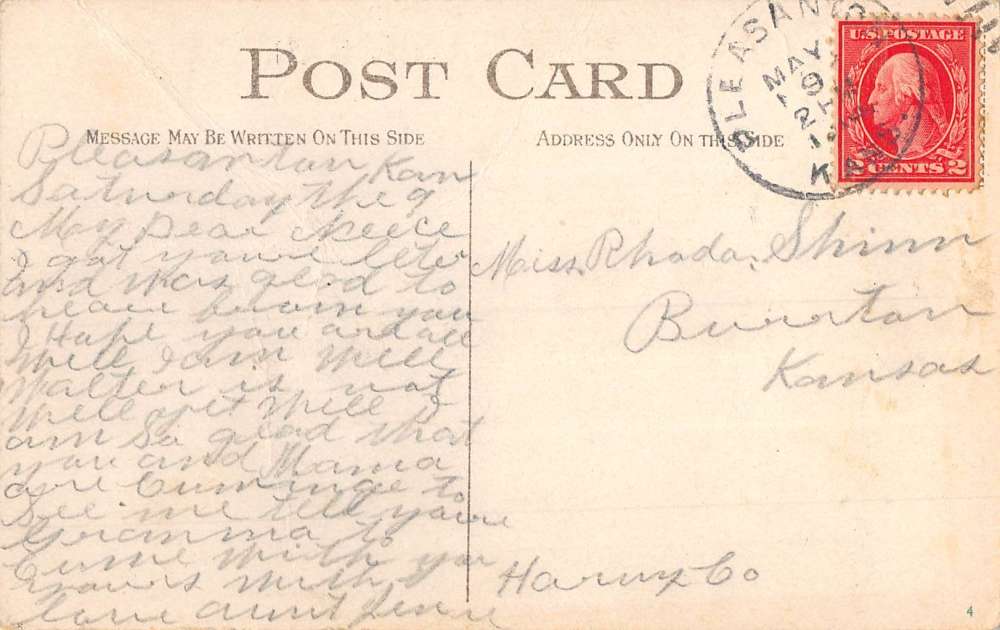 POST CARD
MESSAGE MAY BE WRITTEN ON THIS SIDE
ADDRESS ONLY ON THIS SIDE
PLEASANTON
MAY
KANS.
U.S. POSTAGE
2 CENTS 2
Pleasanton Kan
Saturday the 9
May Dear Neece
I got youre leter
and was glad to
heare from you
I Hope you ar all
Well I am Well
Walter is not
Well yet Well I
am So glad that
you and Mama
are Cuminge to
See me tell youre
Gramma to
Cume With you
yours With
love aunt
Miss Rhoda Shinn
Burrton
Kansas
Harvy Co
4